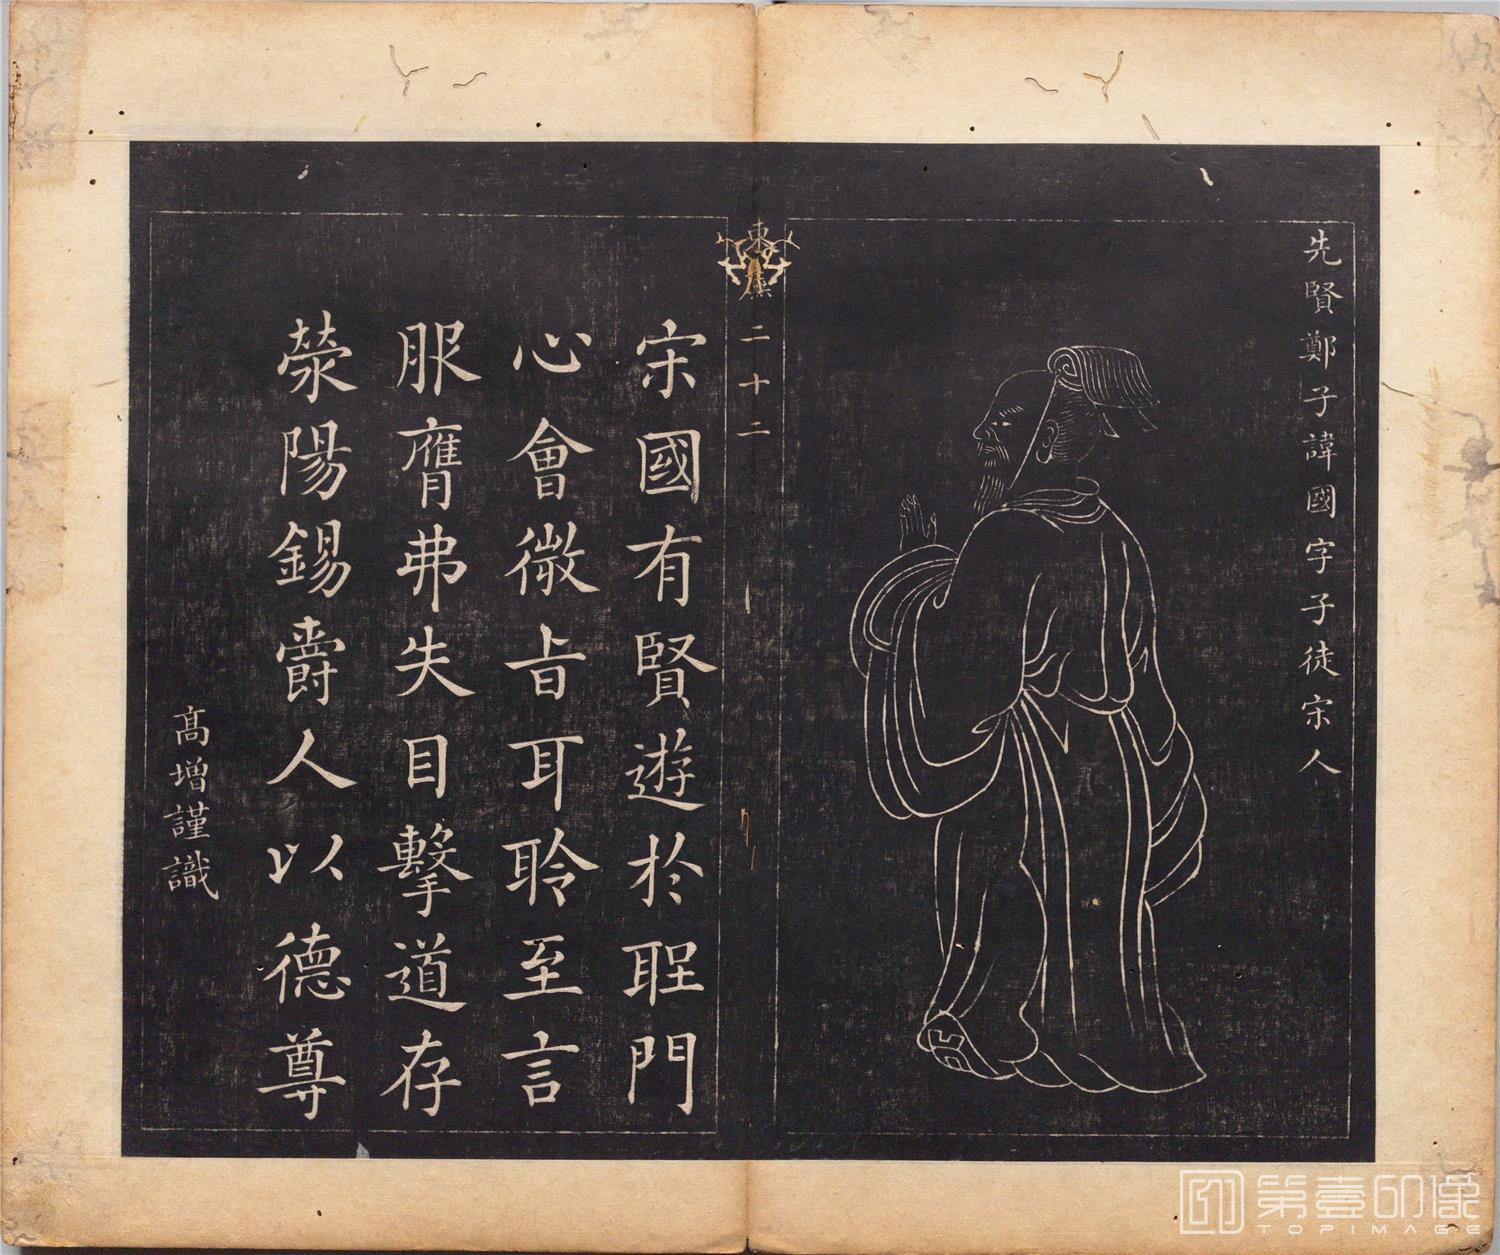 先賢鄭子諱國字子徒宋人
東廡二十二
宋國有賢遊於聖門
心會微旨耳聆至言
服膺弗失目擊道存
滎陽錫爵人以德尊
高增謹識
第壹印像
TOPIMAGE